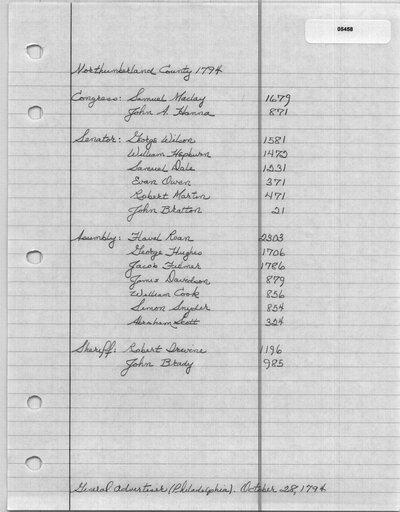 05458
Northumberland County 1794
Congress: Samuel Maclay 1679
John A. Hanna 871
Senator: George Wilson 1581
William Hepburn 1472
Samuel Dale 1231
Evan Owen 371
Robert Martin 471
John Bratton 21
Assembly: Flavel Roan 2303
George Hughes 1706
Jacob Fulmer 1786
James Davidson 879
William Cook 856
Simon Snyder 854
Abraham Scott 354
Sheriff: Robert Irwine 1196
John Brady 985
General Advertiser (Philadelphia). October 28, 1794